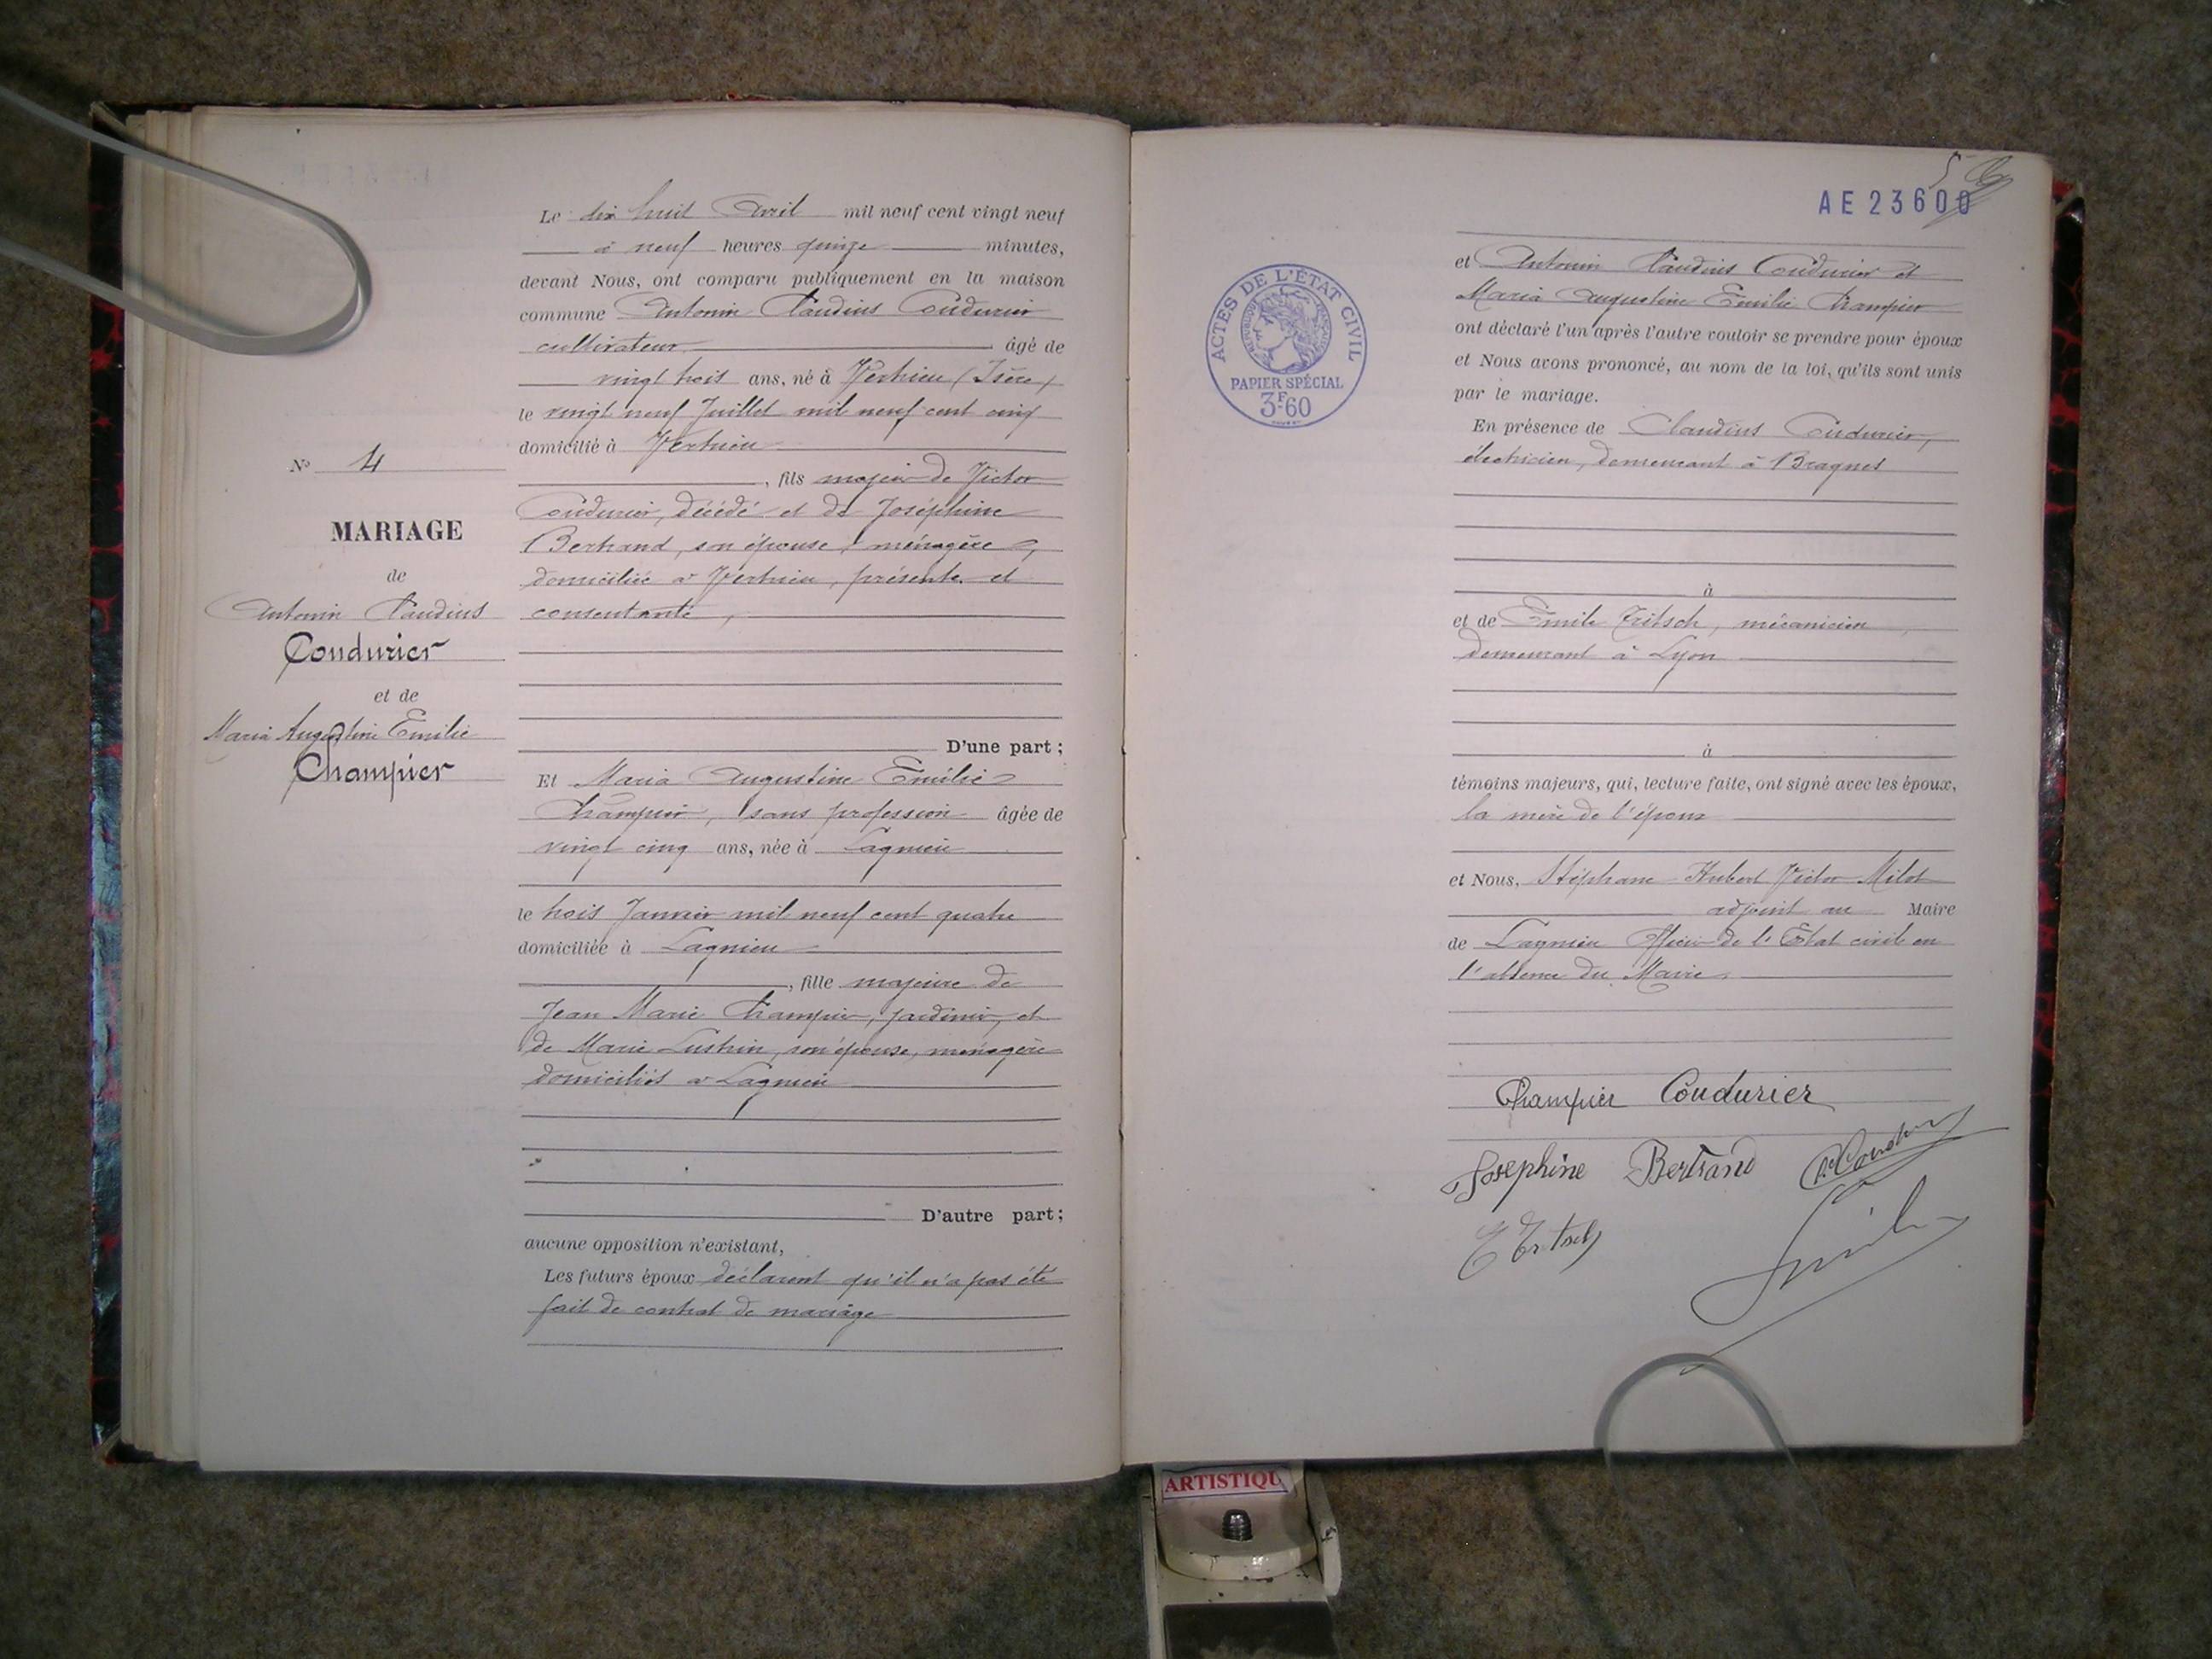 N° 4
MARIAGE
de
Antonin Claudius
Coudurier
et de
Maria Augustine Emilie
Champier
Le dix huit Avril mil neuf cent vingt neuf
à neuf heures quinze minutes,
devant Nous, ont comparu publiquement en la maison
commune Antonin Claudius Coudurier
cultivateur âgé de
vingt trois ans, né à Vertrieu (Isère)
le vingt neuf Juillet mil neuf cent cinq
domicilié à Vertrieu
, fils majeur de Victor
Coudurier, décédé et de Joséphine
Bertrand, son épouse, ménagère,
domiciliée à Vertrieu, présente et
consentante,
D'une part ;
Et Maria Augustine Emilie
Champier, sans profession âgée de
vingt cinq ans, née à Lagnieu
le trois Janvier mil neuf cent quatre
domiciliée à Lagnieu
, fille majeure de
Jean Marie Champier, jardinier, et
de Marie Lustrin, son épouse, ménagère
domiciliés à Lagnieu
D'autre part ;
aucune opposition n'existant,
Les futurs époux déclarent qu'il n'a pas été
fait de contrat de mariage
5
AE 23600
ACTES DE L'ÉTAT CIVIL
RÉPUBLIQUE FRANÇAISE
PAPIER SPÉCIAL
3F60
et Antonin Claudius Coudurier et
Maria Augustine Emilie Champier
ont déclaré l'un après l'autre vouloir se prendre pour époux
et Nous avons prononcé, au nom de la loi, qu'ils sont unis
par le mariage.
En présence de Claudius Coudurier,
électricien, demeurant à Bragnes
à
et de Emile Tritsch, mécanicien,
demeurant à Lyon
à
témoins majeurs, qui, lecture faite, ont signé avec les époux,
la mère de l'époux
et Nous, Stéphane Hubert Victor Milot
adjoint au Maire
de Lagnieu Officier de l'Etat civil en
l'absence du Maire.
Champier Coudurier
Josephine Bertrand
E Tritsch
ARTISTIQU